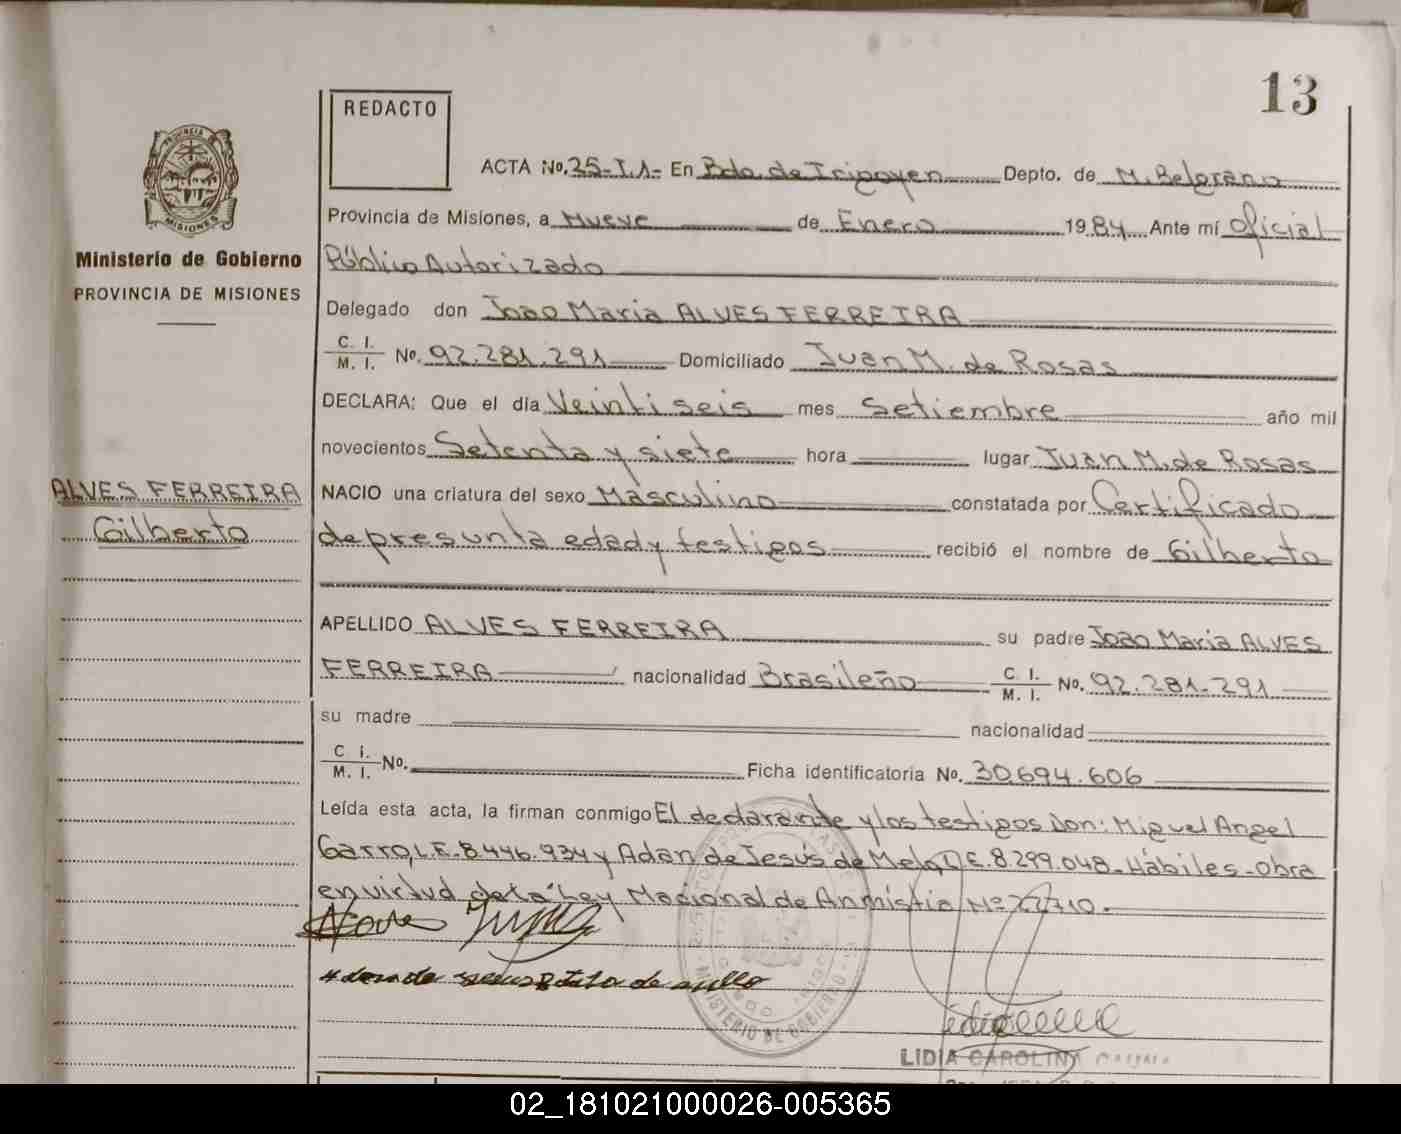 13
REDACTO
ACTA No. 35-T.1- En Bdo. de Irigoyen Depto. de M. Belgrano
Provincia de Misiones, a Nueve de Enero 1984 Ante mí Oficial
Ministerio de Gobierno
PROVINCIA DE MISIONES
Público Autorizado
Delegado don Joao Maria ALVES FERREIRA
C. I. M. I. No. 92.281.291 Domiciliado Juan M. de Rosas
DECLARA: Que el día Veintiseis mes Setiembre año mil
novecientos Setenta y siete hora lugar Juan M. de Rosas
ALVES FERREIRA
Gilberto
NACIO una criatura del sexo Masculino constatada por Certificado
de presunta edad y testigos recibió el nombre de Gilberto
APELLIDO ALVES FERREIRA su padre Joao Maria ALVES
FERREIRA nacionalidad Brasileño C. I. M. I. No. 92.281.291
su madre nacionalidad
C I. M. I. No. Ficha identificatoria No. 30.694.606
Leída esta acta, la firman conmigo El declarante y los testigos Don: Miguel Angel
Garro, L.E. 8.446.934 y Adan de Jesús de Melo, D.E. 8.299.048 - Hábiles - Obra
en virtud de la Ley Nacional de Anmistia Nº 22710.
MINISTERIO DE GOBIERNO
LIDIA CAROLINA
02_181021000026-005365